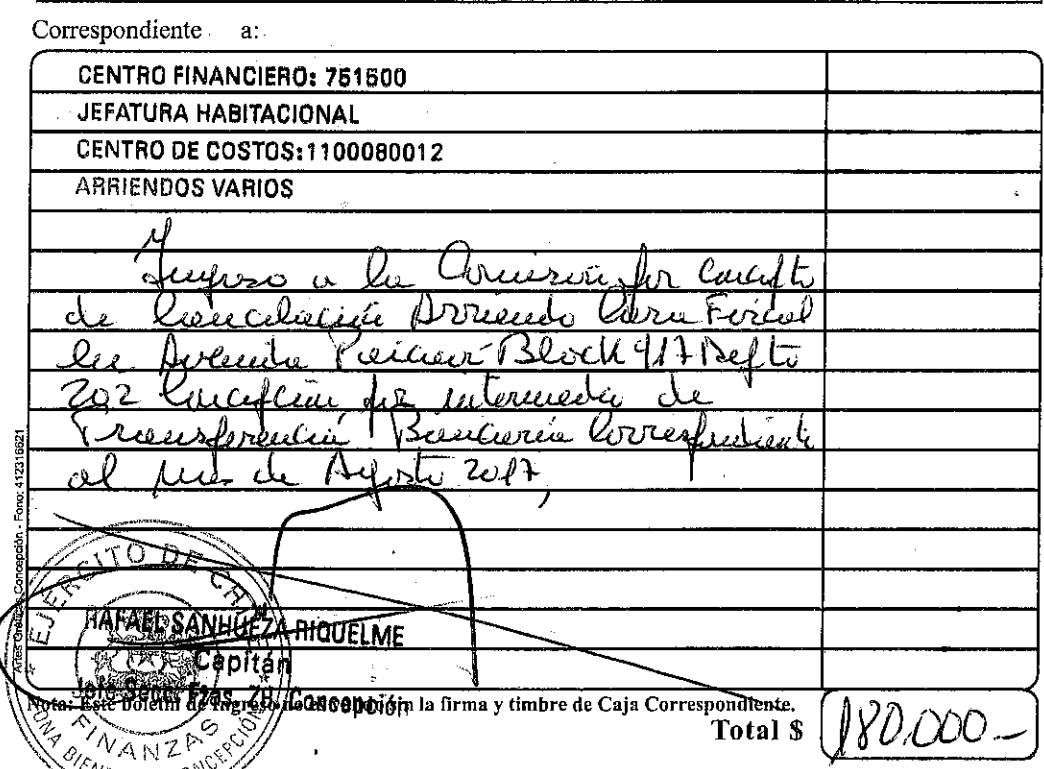 Correspondiente a:
CENTRO FINANCIERO: 751500
JEFATURA HABITACIONAL
CENTRO DE COSTOS:1100080012
ARRIENDOS VARIOS
Ingreso a la Comisión por Concepto
de Cancelación Arriendo Casa Fiscal
en Avenida Block 917 Depto
202 Concepción por intermedio de
Transferencia Bancaria Correspondiente
al mes de Agosto 2017,
Artes Gráficas Concepción - Fono: 412316621
EJERCITO DE CHILE
RAFAEL SANHUEZA RIQUELME
Capitán
Jefe Secc. Fzas. ZB. Concepción
Nota: Este boletín de Ingreso no la firma y timbre de Caja Correspondiente.
FINANZAS
ZONA CONCEPCIÓN
Total $ 180.000.-